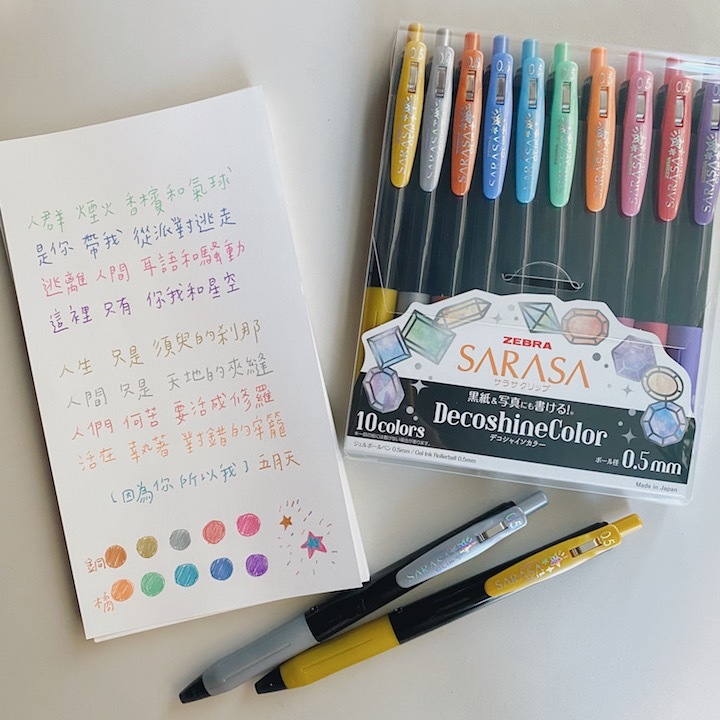 人群 煙火 香檳和氣球
是你 帶我 從派對逃走
逃離 人間 耳語和騷動
這裡 只有 你我和星空
人生 只是 須臾的刹那
人間 只是 天地的夾縫
人們 何苦 要活成修羅
活在 執著 對錯的牢籠
(因為你 所以我) 五月天
銅
橘
0.5
0.5
0.5
0.5
0.5
SARASA
SARASA
SARASA
SARASA
SARASA
SARASA
SARASA
SARASA
SARASA
SARASA
ZEBRA
SARASA
サラサクリップ
黒紙&写真にも書ける!。
DecoshineColor
デコシャインカラー
10 colors
ジェルボールペン 0.5mm / Gel Ink Rollerball 0.5mm
ボール径
0.5mm
Made in Japan
SARASA
0.5
SARASA
0.5